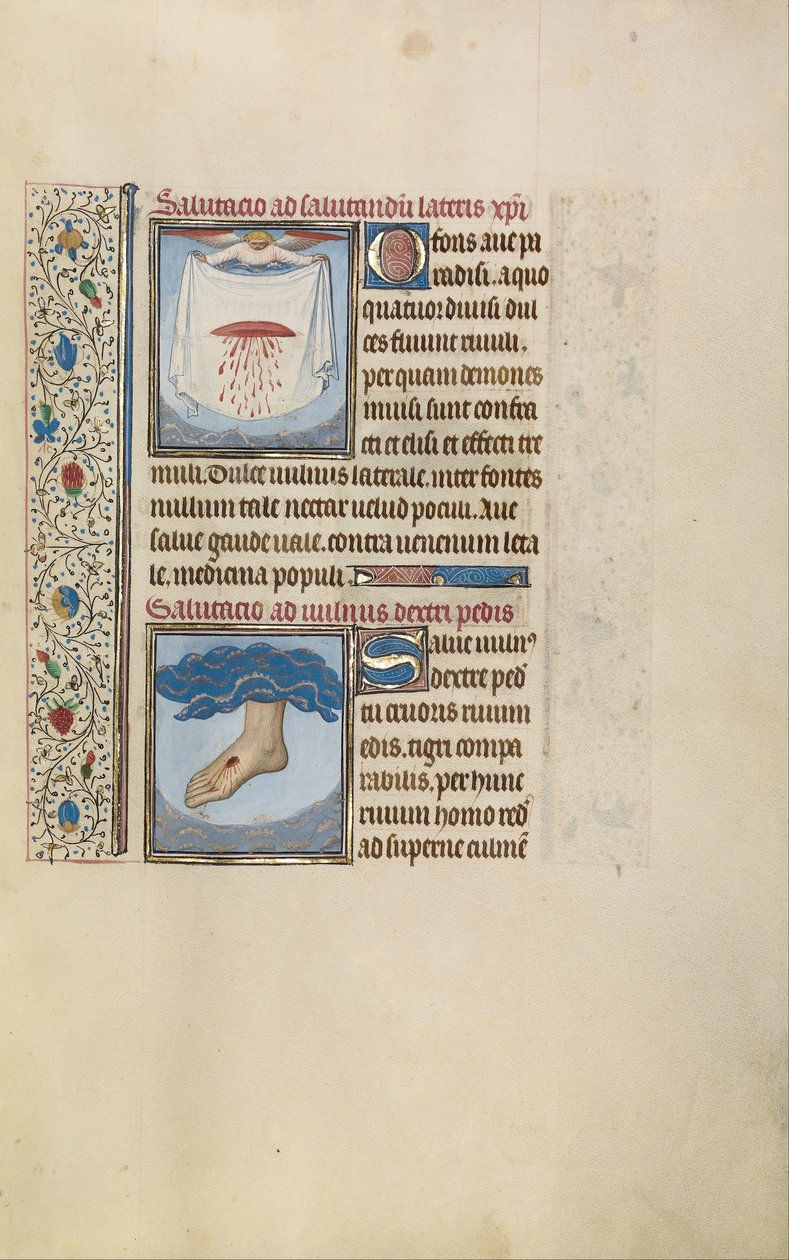 Salutacio ad salutandū lateris xp̄i
O fons aue pa
radisi. a quo
quatuor diuisi dul
ces fluunt riuuli.
per quam demones
inuisi sunt confra
cti et elisi et effecti tre
muli. Dulce uulnus laterale. inter fontes
nullum tale nectar uelud poculi. Aue
salue gaude uale. contra uenenum leta
le. medicina populi.
Salutacio ad uulnus dextri pedis
Salue uulnꝰ
dextre ped
tu cruoris riuum
edis. tigri compa
rabilis. per hunc
riuum homo red
ad superne culmē